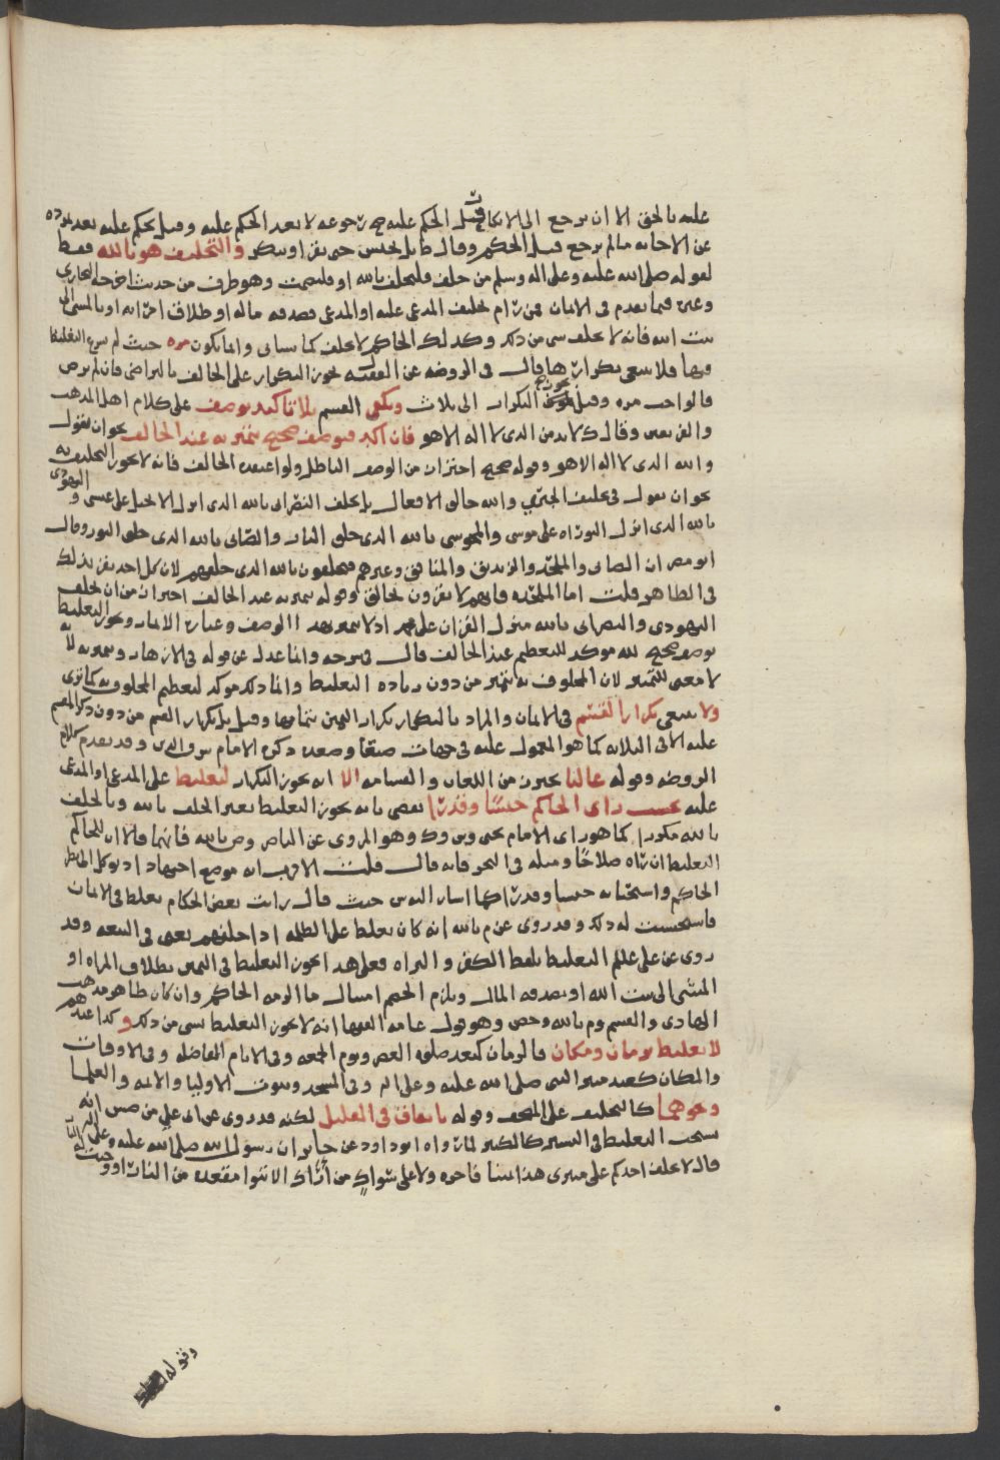 عليه بالحق الا ان يرجع الى الانكار قبل الحكم عليه صح رجوعه لا بعد الحكم عليه وقيل يحكم عليه بعد تمرده
عن الاجابه ما لم يرجع قبل الحكم وقال ط بل يحبس حتى يقر او ينكر والتحليف هو بالله فقط
لقوله صلى الله عليه وعلى اله وسلم من حلف فليحلف بالله او فليصمت وهو طرف من حديث اخرجه البخاري
وغيره فيما تقدم في الايمان فمن رام تحليف المدعى عليه او المدعي فصدقه ماله او طلاق امراته او بالمشي الى
بيت الله فانه لا يحلف بشي من ذلك وكذلك الحاكم لا يحلف كما سياتي وانما يكون مره حيث لم يرى التغليظ
فيها فلا ينبغي تكرارها قال في الروضه عن الفقيه يجوز التكرار على الحالف بالتراضي فان لم يرض
فالواجب مره وقيل يجوز التكرار الى ثلاث ويكفي القسم بلا تاكيد بوصف على كلام اهل المذهب
والفريقين وقال ك لا بد من الذي لا اله الا هو فان اكد فبوصف صحيح يتميز به عند الحالف نحو ان يقول
والله الذي لا اله الا هو وقوله صحيح احتراز من الوصف الباطل ولو اعتقده الحالف فانه لا يجوز التحليف به
نحو ان يقول في تحليف الجبري والله خالق الافعال بل يحلف النصراني بالله الذي انزل الانجيل على عيسى واليهودي
بالله الذي انزل التوراه على موسى والمجوسي بالله الذي خلق النار والصابي بالله الذي خلق النور وقال
ابو مضر ان الصابي والملحد والزنديق والمنافق وغيرهم فيحلفون بالله الذي خلقهم لان كل احد يقر بذلك
في الظاهر قلت اما الملحده فانهم لا يقرون بخالق وقوله يتميز به عند الحالف احتراز من ان يحلف
اليهودي والنصراني بالله منزل القران على محمد اذ لا يتميز بهذا الوصف وعبارة الاثمار ويجوز التغليظ
بوصف صحيح لله موكد للتعظيم عند الحالف قال في شرحه وانما عدل عن قوله في الازهار ويتميز به لانه
لا معنى للتميز لان المحلوف به يتميز من دون زياده التغليظ وانما ذلك موكد لتعظيم المحلوف به كما ترى
ولا ينبغي تكرار القسم في الايمان والمراد بالتكرار تكرار اليمين بتمامها وقيل بل تكرار القسم من دون ذكر المقسم
عليه الا في الثلاثه كما هو المعمول عليه في جهات صنعا وصعده ذكره الامام شرف الدين وقد تقدم كلام
الروضه وقوله غالبا يحترز من اللعان والقسامه الا انه يجوز التكرار لتغليظ على المدعي او المدعى
عليه بحسب راى الحاكم حبسًا وقدرًا يعني بانه يجوز التغليظ بغير الحلف بالله وبالحلف
بالله مكررا كما هو راى الامام يحيى وش وك وهو المروي عن الناصر وص بالله فانهما قالا ان للحاكم
التغليظ ان راه صلاحًا ومثله في البحر فانه قال قلت الاقرب انه موضع اجتهاد اذ يوكل الى نظر
الحاكم واستحسانه جنسا وقدرا كما اشار اليه ش حيث قال رايت بعض الحكام يغلظ في الايمان
فاستحسنت له ذلك وقد روي عن م بالله انه كان يغلظ على الظلمه اذا حلفهم يعني في البيعه وقد
روي عن علي عليلم التغليظ بلفظ الكفر والبراه فعلى هذا يجوز التغليظ في اليمين بطلاق المراه او
المشي الى بيت الله او بصدقه المال ويلزم الخصم امتثال ما الزمه الحاكم وان كان ظاهر مذهب
الهادي والقسم وم بالله وحص وهو قول عامه الفقها انه لا يجوز التغليظ بشي من ذلك وكذا عندهم
لا تغليظ بزمان ومكان فالزمان كبعد صلوه العصر ويوم الجمعه وفي الايام الفاضله وفي الاوقات
والمكان كعند منبر النبي صلى الله عليه وعلى اله وفي المسجد وبيوت الاوليا والايمه والعلما
ونحوهما كالتحليف على المصحف وقوله باتفاق في القليل لكنه قد روي عن ابي علي من صش انه
يستحب التغليظ في اليسير كالكثير لما رواه ابو داود عن جابر ان رسول الله صلى الله عليه وعلى اله
قال لا يحلف احدكم على منبري هذا يمينا فاجره ولا على سواك من اراك الا تبوا مقعده من النار او وجبت له النار
وقوله